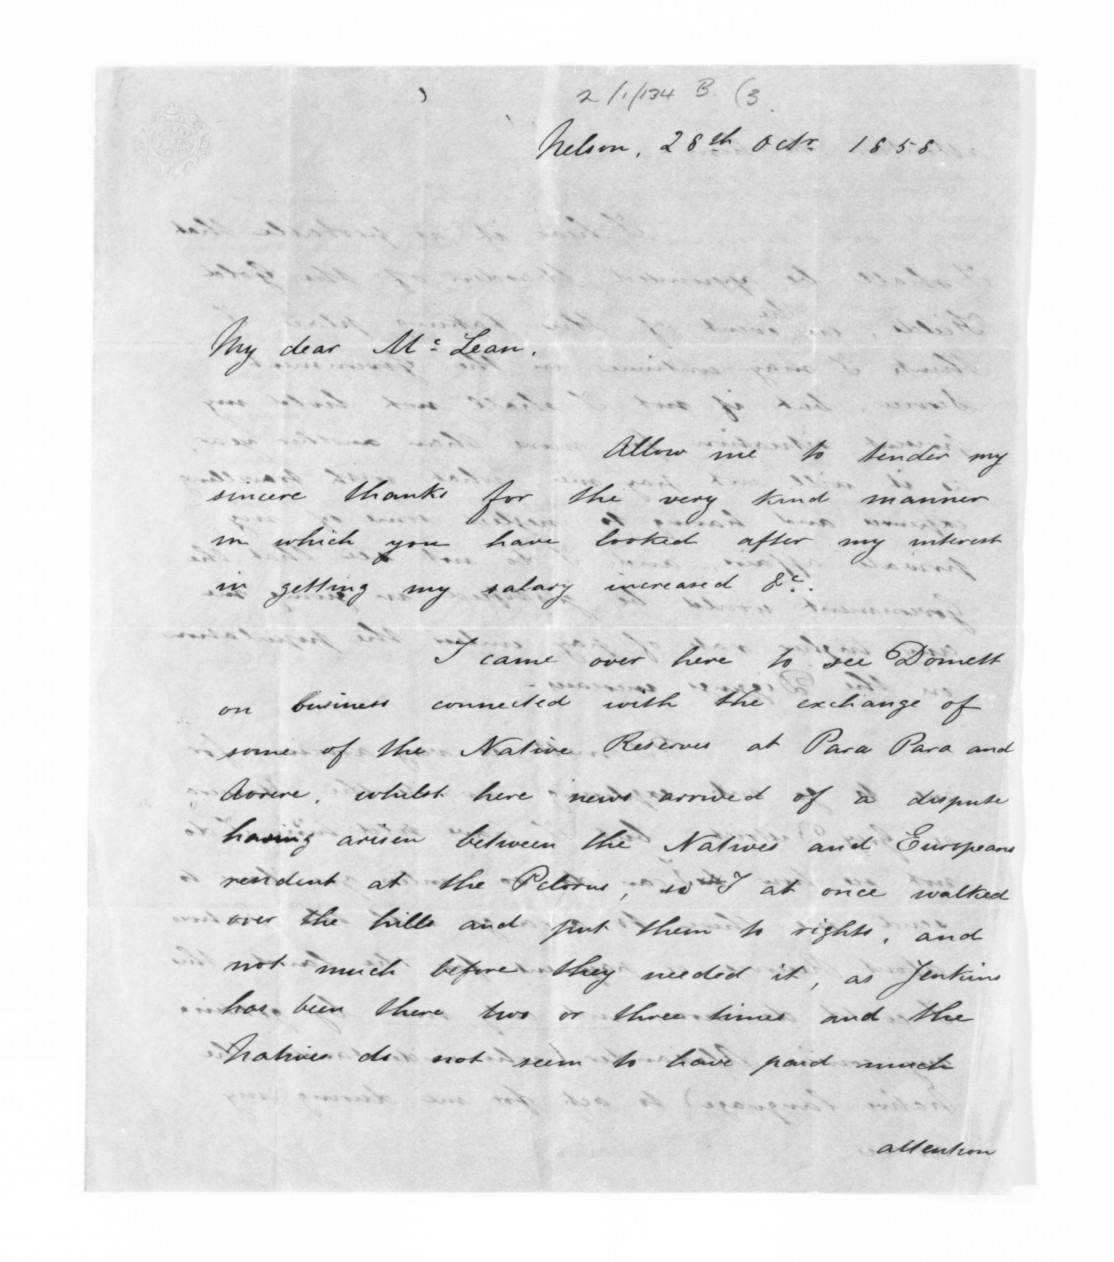 2/1/134 B. (3.
Nelson, 28th Octr. 1858
My dear McLean.
Allow me to tender my
sincere thanks for the very kind manner
in which you have looked after my interest
in getting my salary increased &c.
I came over here to see Domett
on business connected with the exchange of
some of the Native Reserves at Para Para and
Aorere, whilst here news arrived of a dispute
having arisen between the Natives and Europeans
resident at the Pelorus, so I at once walked
over the hills and put them to rights, and
not much before they needed it, as Jenkins
has been there two or three times and the
Natives do not seem to have paid much
attention